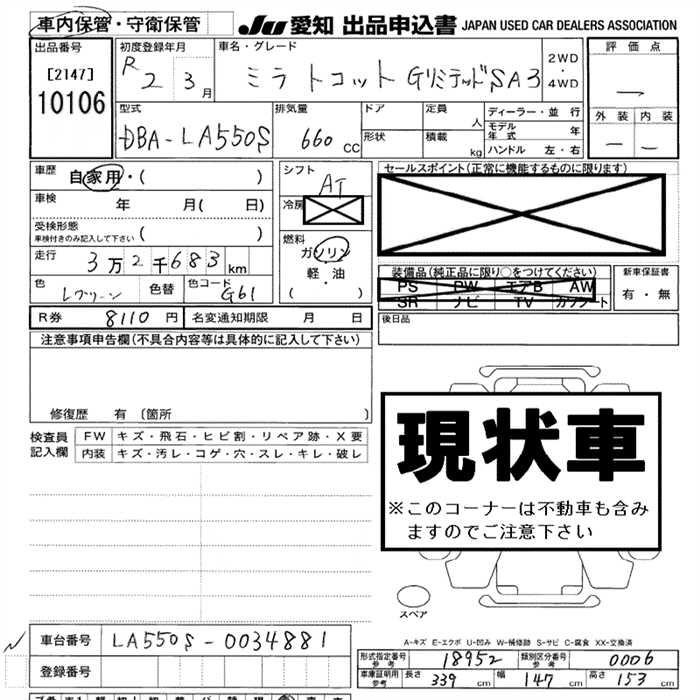 車内保管・守衛保管 JU 愛知 出品申込書 JAPAN USED CAR DEALERS ASSOCIATION
出品番号 初度登録年月 車名・グレード 2WD・4WD 評価点
[2147] R2 3月 ミラトコット GリミテッドSA3 —
10106
型式 排気量 ドア 定員 ディーラー・並行 外装 内装
DBA-LA550S 660cc 形状 人 積載 kg モデル年式 年 — —
ハンドル 左・右
車歴 自家用・( ) シフト AT セールスポイント(正常に機能するものに限ります)
車検 年 月( 日) 冷房
受検形態 ( )
車検付きのみ記入して下さい
燃料 ガソリン
走行 3万2千683km 軽・油 装備品(純正品に限り○をつけてください) 新車保証書
( ) PS PW エアB AW 有・無
色 Lグリーン 色替 色コード G61 SR ナビ TV カワシート
R券 8110円 名変通知期限 月 日 後日品
注意事項申告欄(不具合内容等は具体的に記入して下さい)
修復歴 有 [箇所 ]
検査員 FW キズ・飛石・ヒビ割・リペア跡・X要
記入欄 内装 キズ・汚レ・コゲ・穴・スレ・キレ・破レ
現状車
※このコーナーは不動車も含み
ますのでご注意下さい
スペア
A-キズ E-エクボ U-凹み W-補修跡 S-サビ C-腐食 XX-交換済
車台番号 LA550S-0034881
登録番号
形式指定番号 参考 18952 類別区分番号 参考 0006
車庫証明用 参考 長さ 339cm 幅 147cm 高さ 153cm